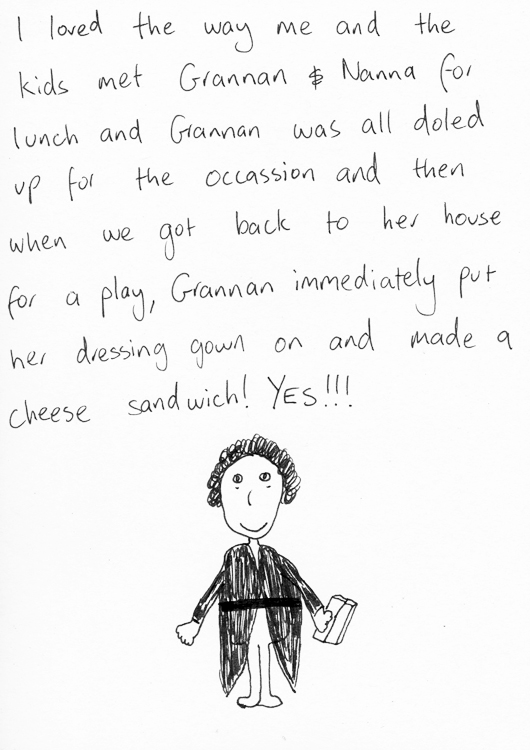 I loved the way me and the
kids met Grannan & Nanna for
lunch and Grannan was all doled
up for the occassion and then
when we got back to her house
for a play, Grannan immediately put
her dressing gown on and made a
cheese sandwich! YES!!!